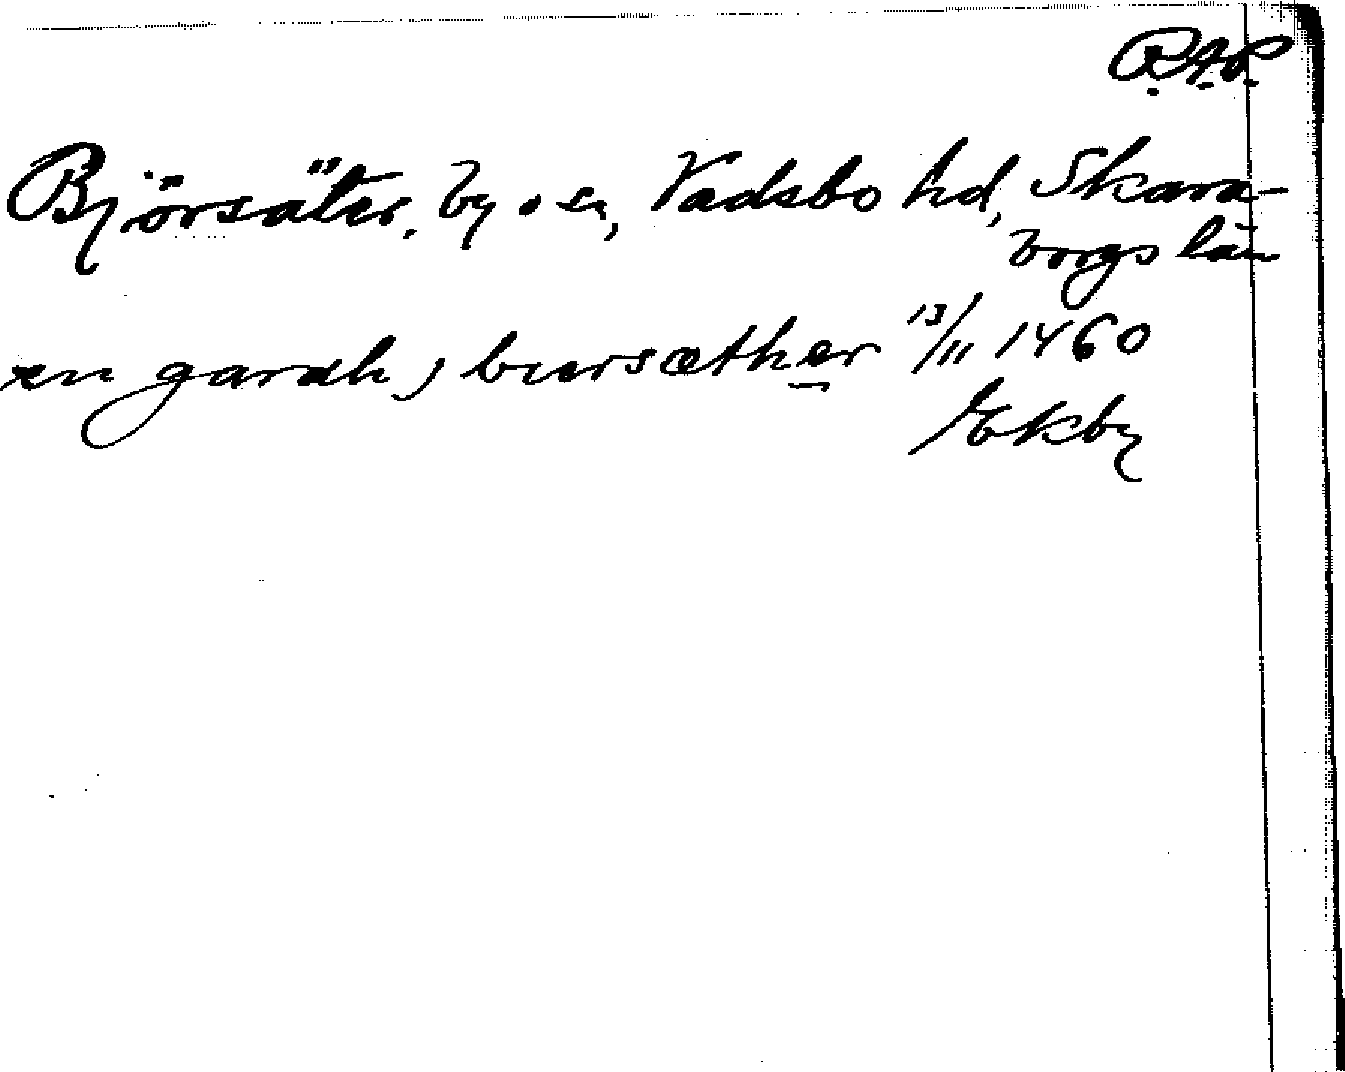 R.A.P.
Björsäter, by o sn, Vadsbo hd, Skara-
borgs län
en gardh j biersæther 13/11 1460
Ekby